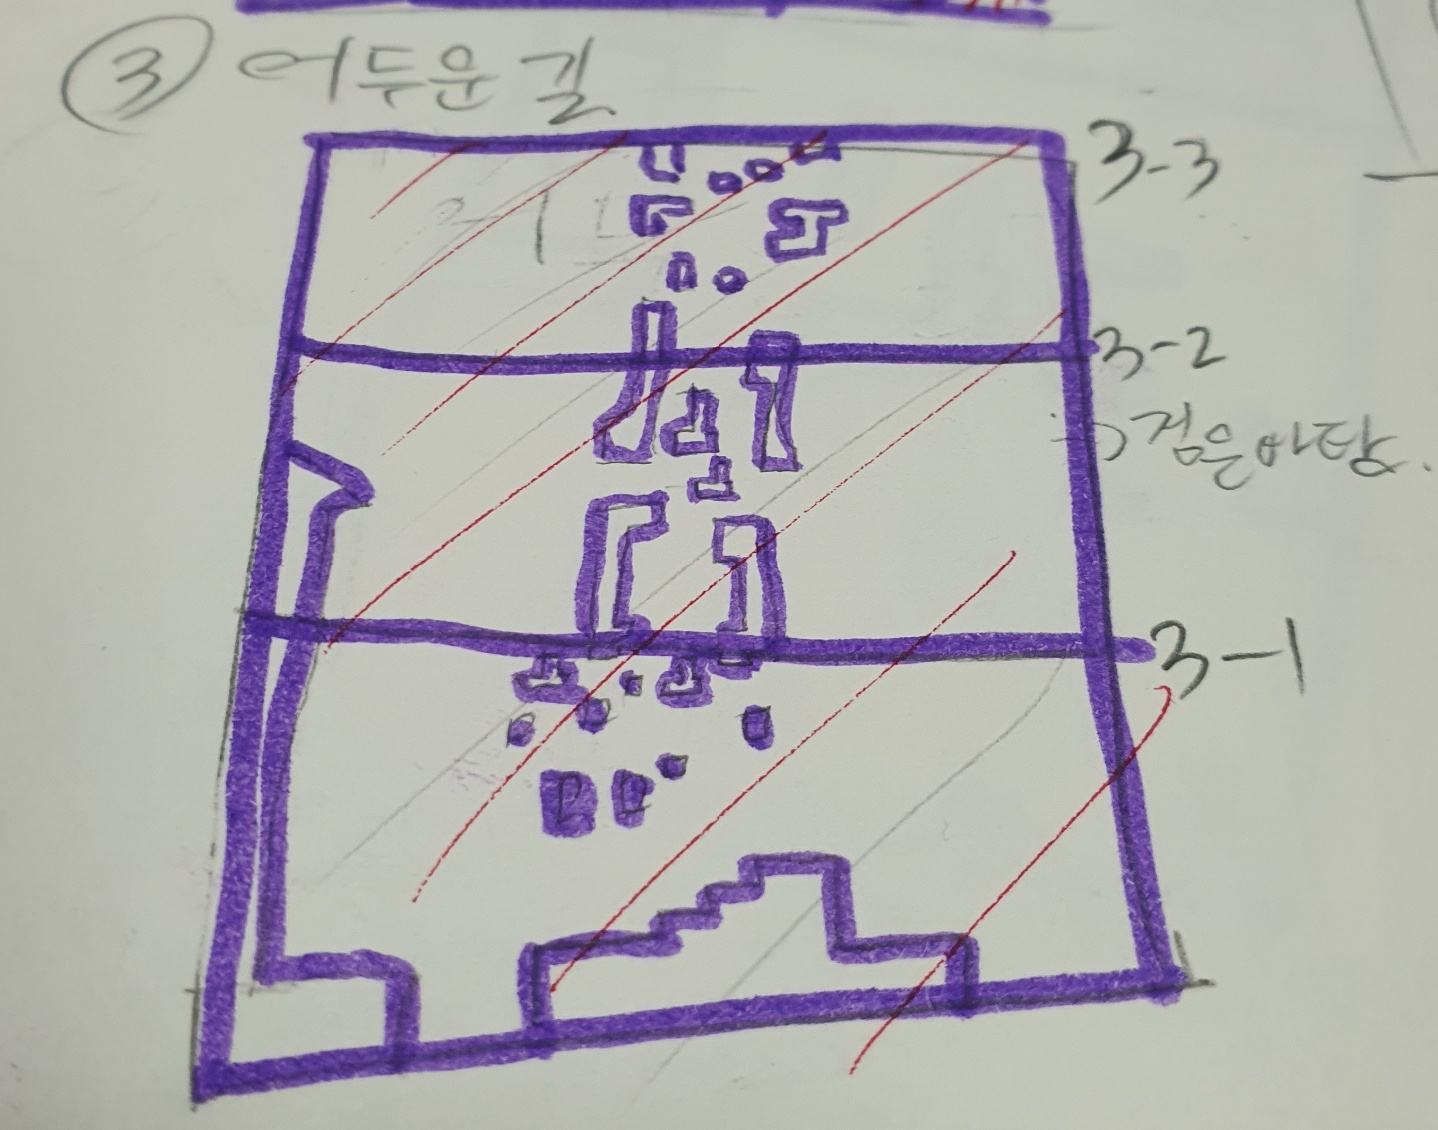 ③ 어두운 길
3-3
3-2
→ 검은 바탕.
3-1